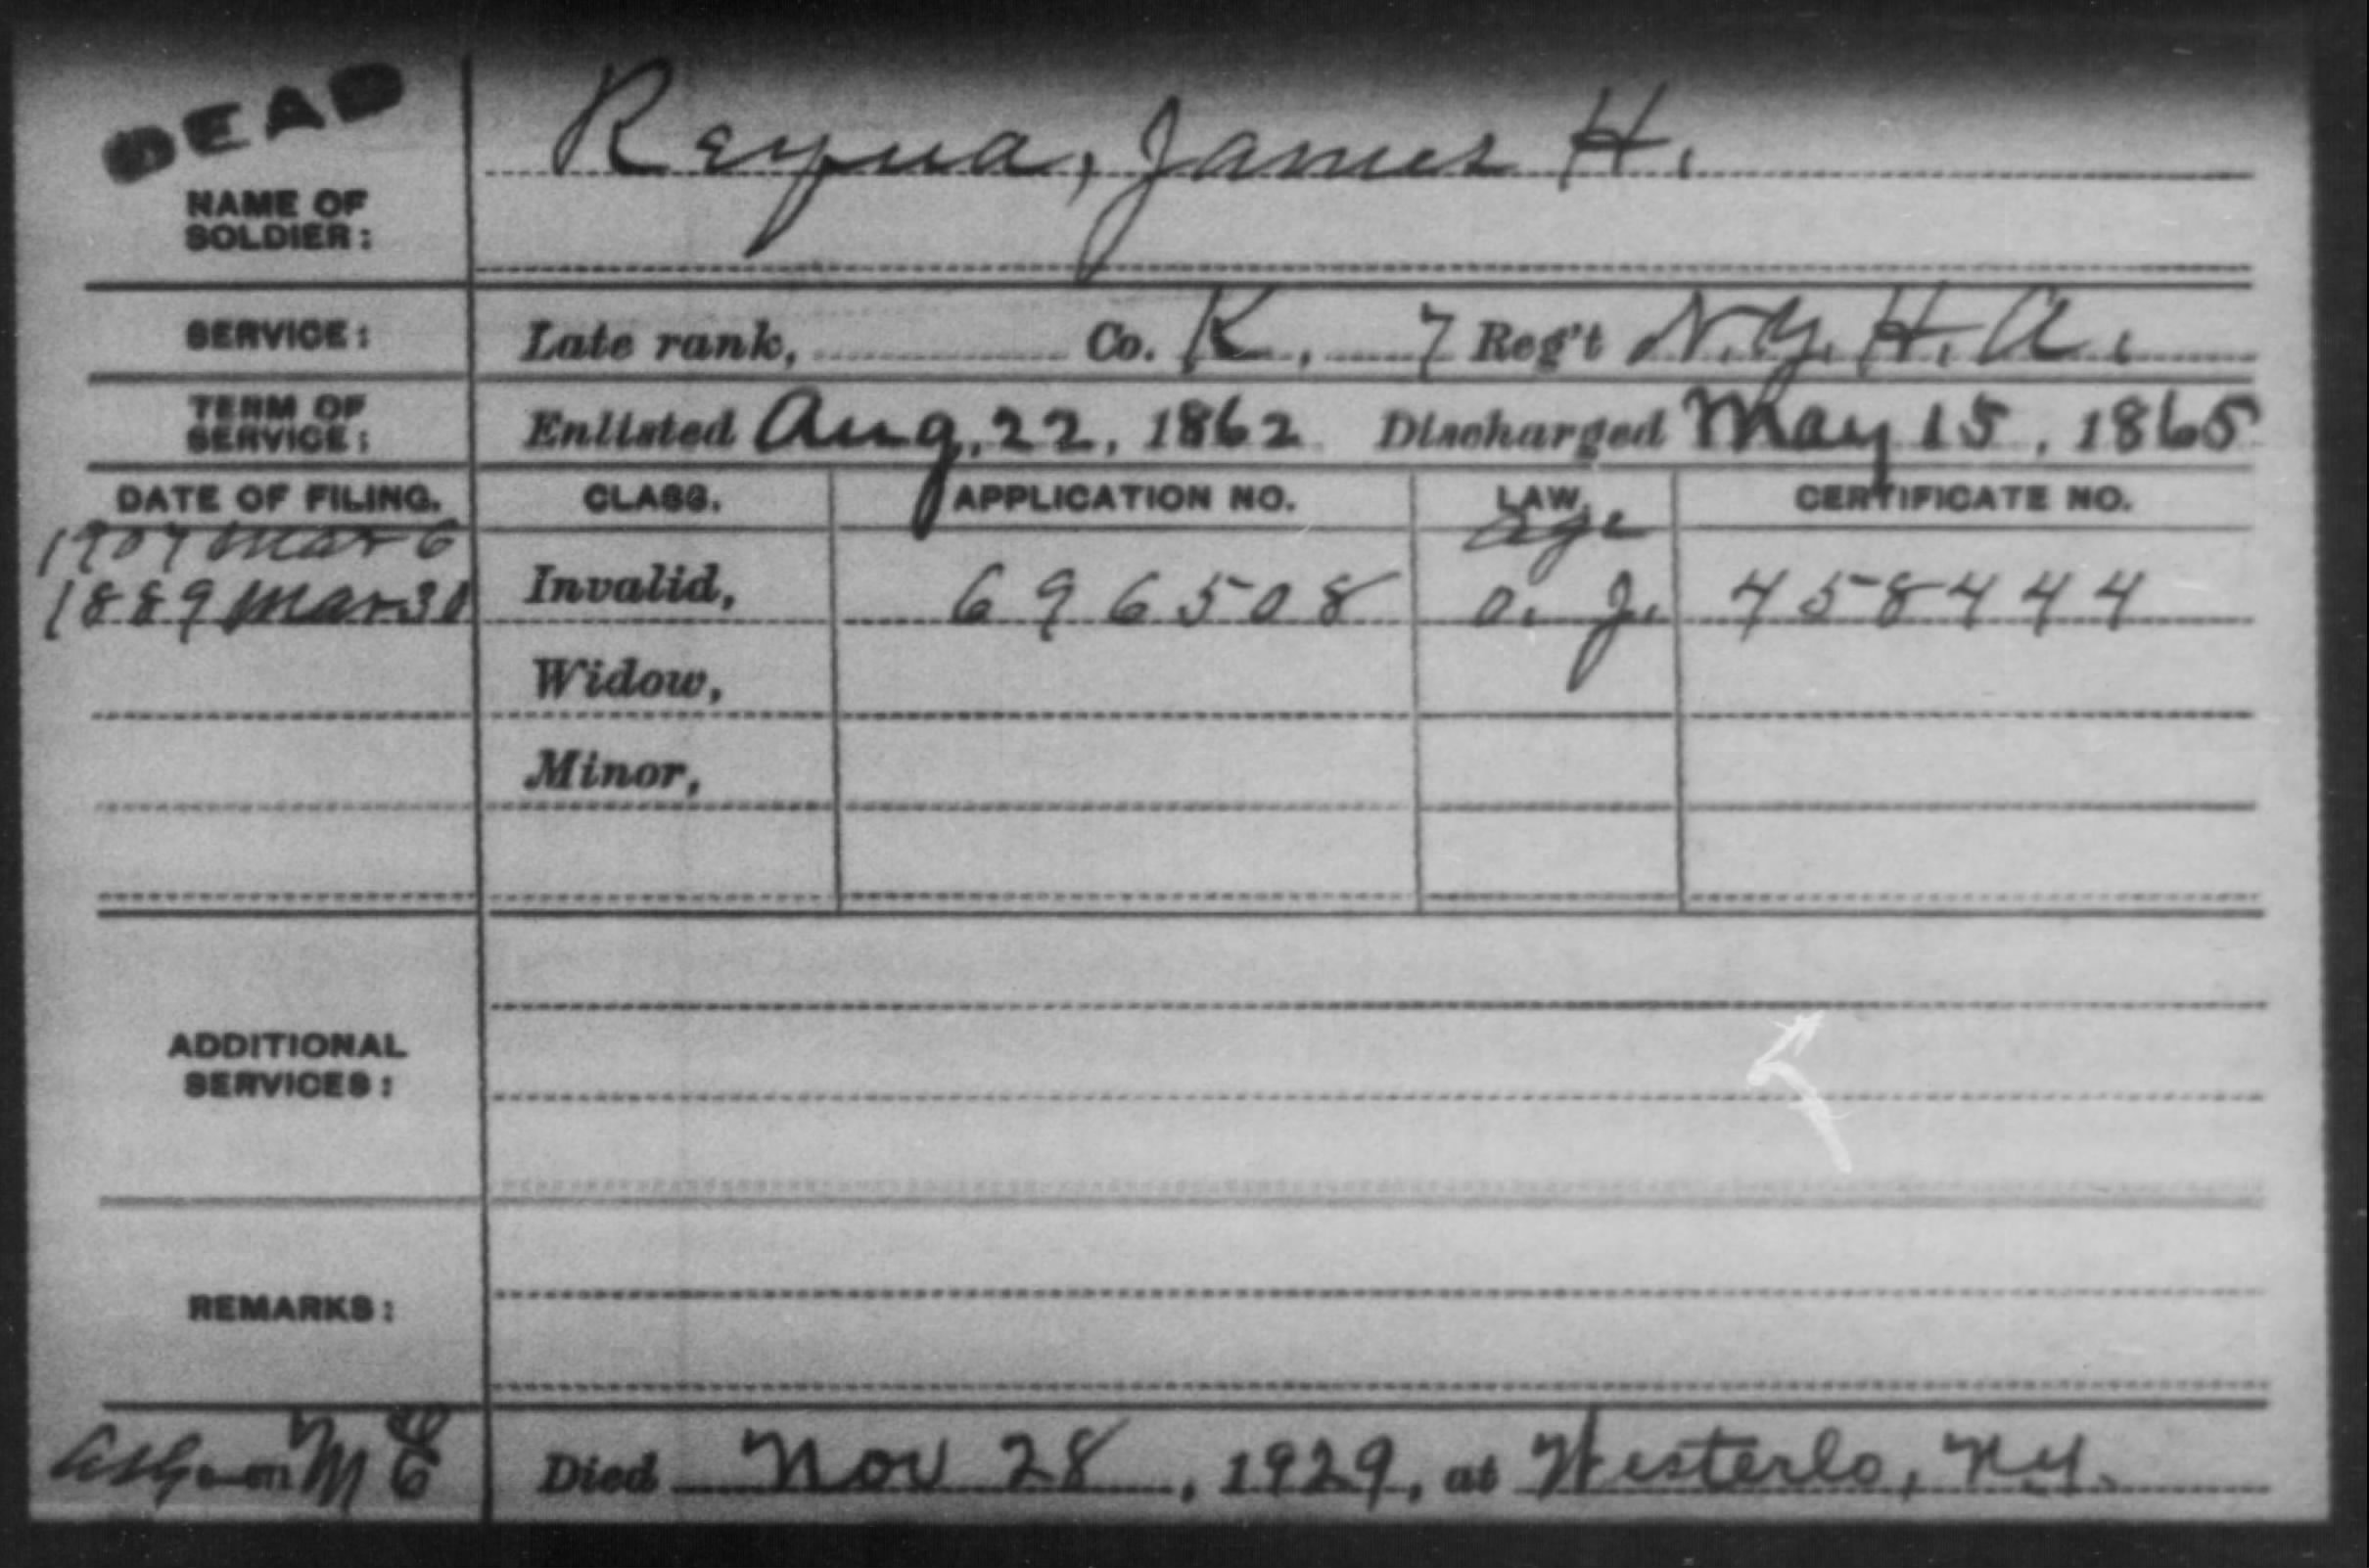 DEAD
NAME OF SOLDIER:
Requa, James H.
SERVICE: Late rank, Co. K, 7 Reg't N.Y. H. A.
TERM OF SERVICE: Enlisted Aug, 22, 1862 Discharged May 15, 1865
DATE OF FILING. CLASS. APPLICATION NO. LAW. CERTIFICATE NO.
1907 Mar 6 age
1889 Mar 30 Invalid, 696508 O. J. 458444
Widow,
Minor,
ADDITIONAL SERVICES:
REMARKS:
Died Nov 28, 1929, at Westerlo, N.Y.